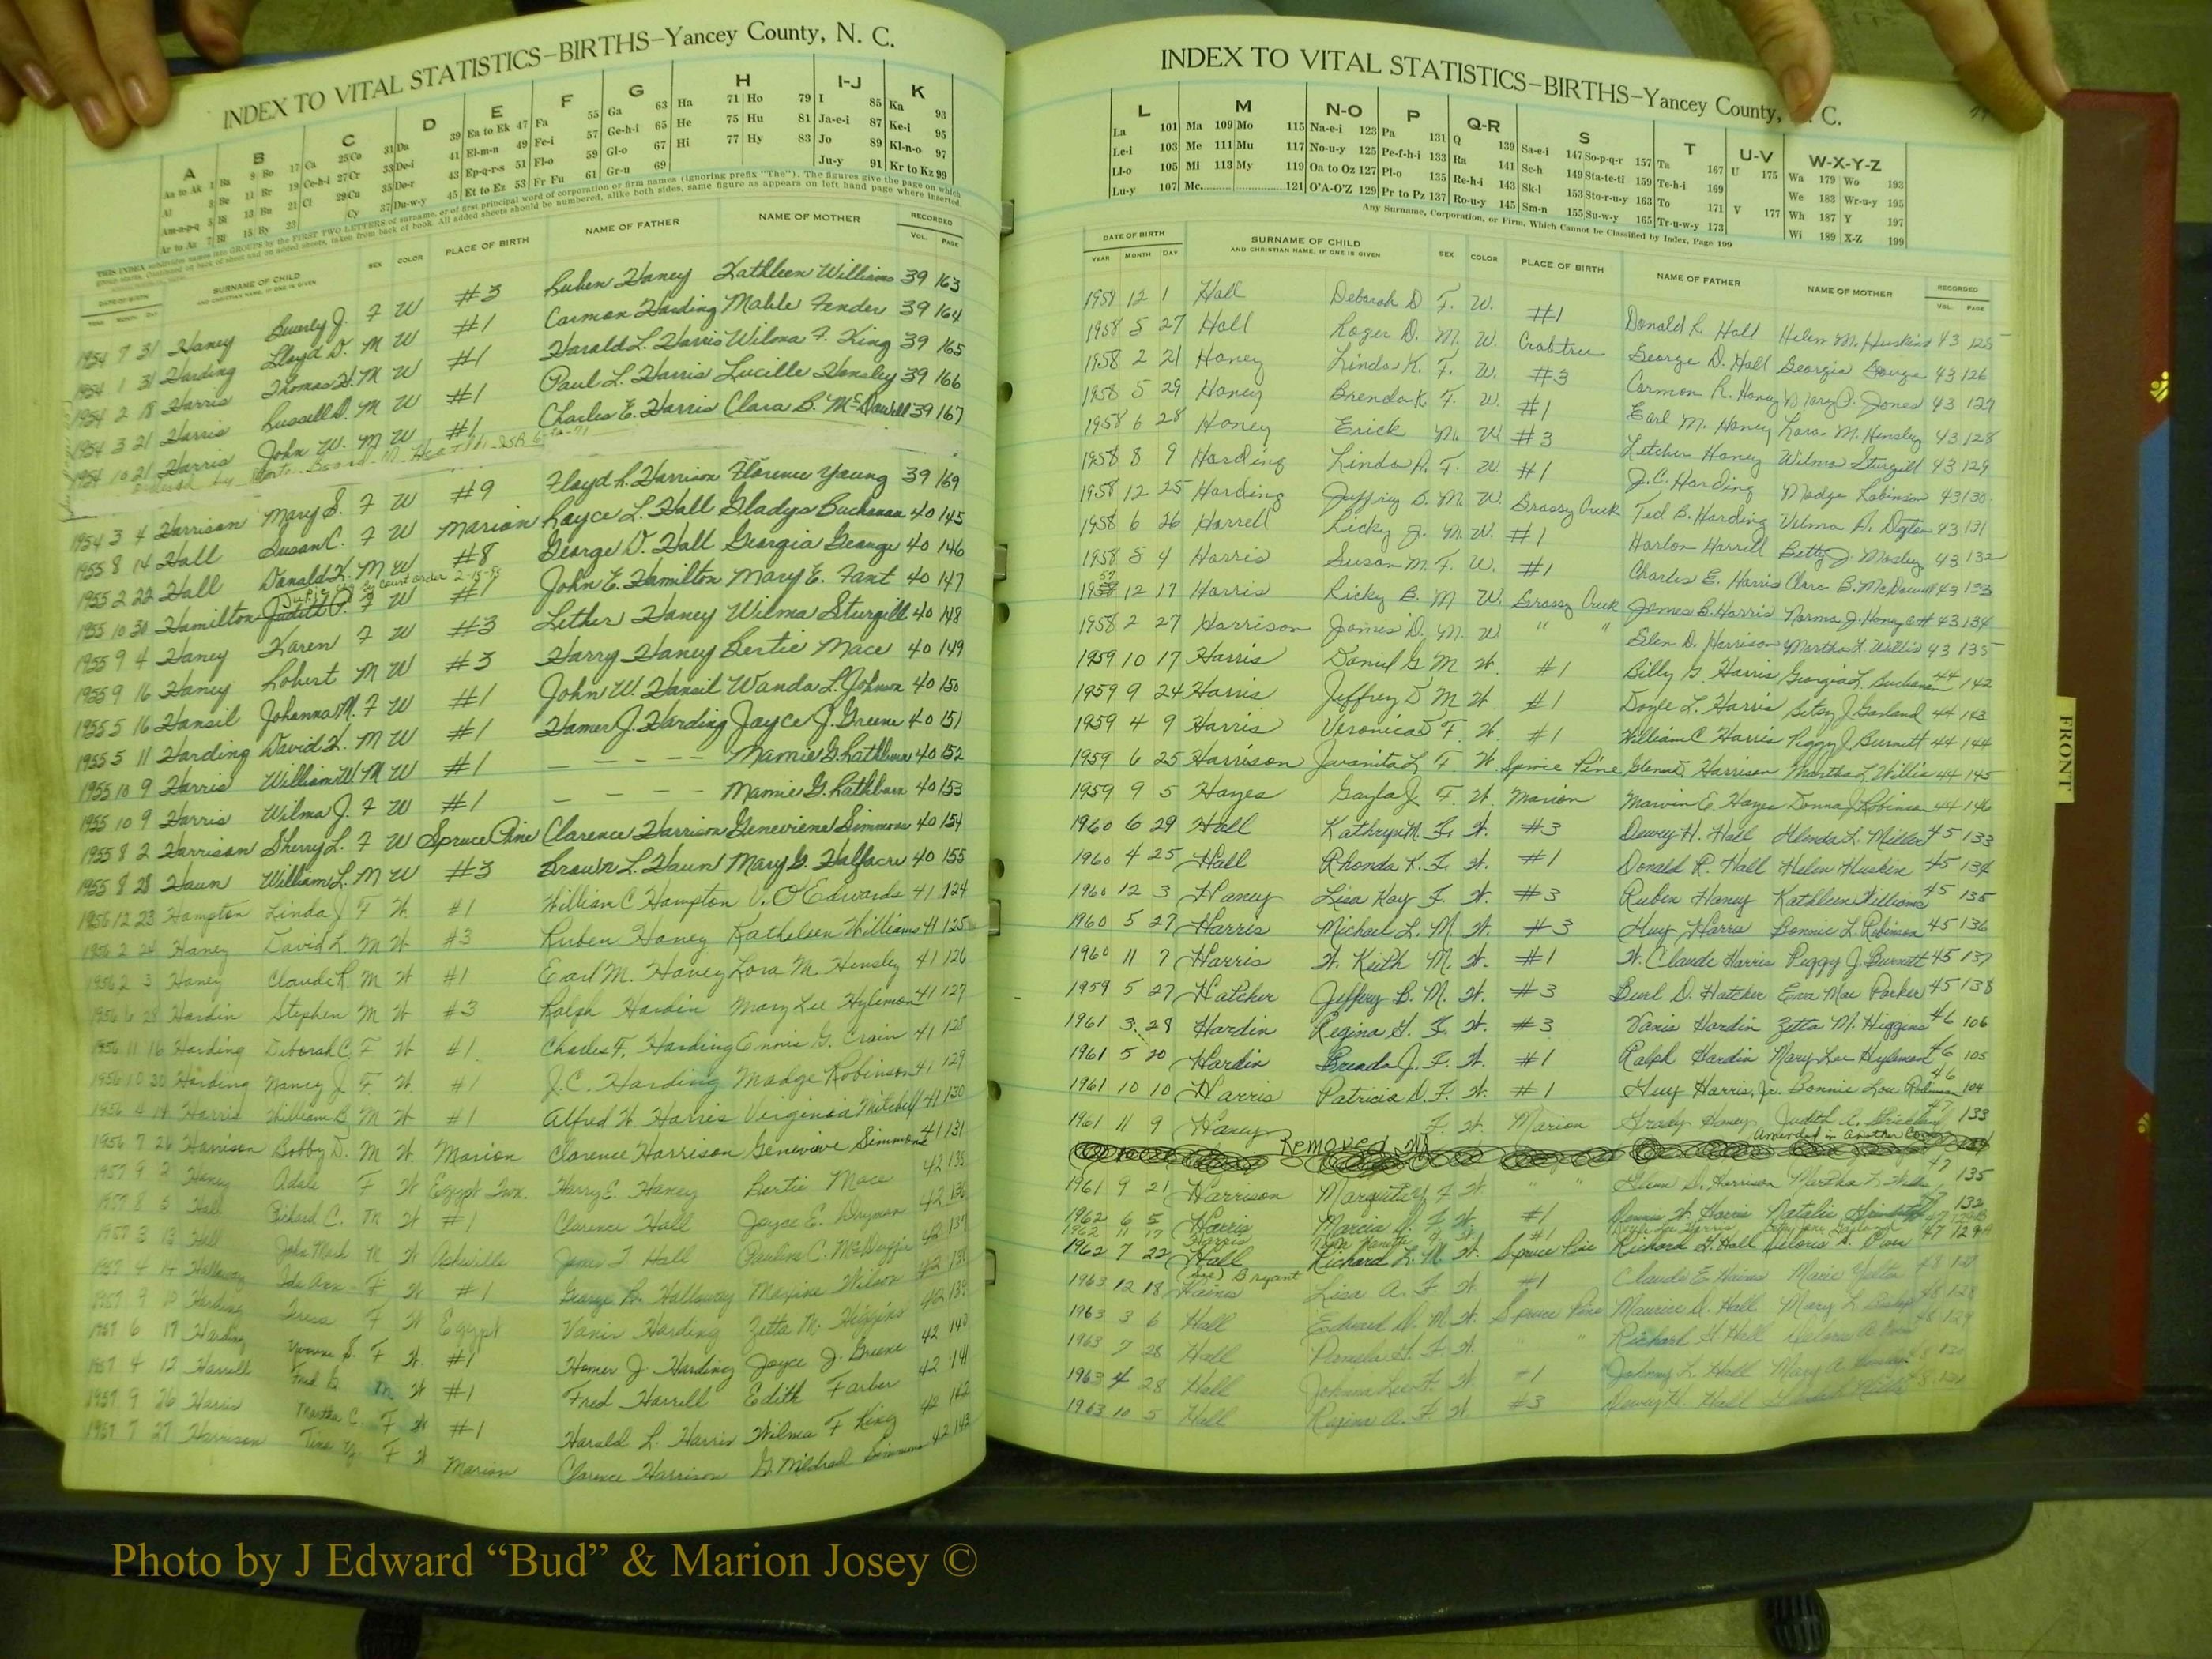 INDEX TO VITAL STATISTICS—BIRTHS—Yancey County, N. C.
A B C D E F G H I-J K
Aa to Ak 1 Ba 9 Bo 17 Ca 25 Co 31 Da 39 Ea to Ek 47 Fa 55 Ga 63 Ha 71 Ho 79 I 85 Ka 93
Al 3 Be 11 Br 19 Ce-h-i 27 Cr 33 De-i 41 El-m-n 49 Fe-i 57 Ge-h-i 65 He 75 Hu 81 Ja-e-i 87 Ke-i 95
Am-n-p-q 5 Bi 13 Bu 21 Cl 29 Cu 35 Do-r 43 Ep-q-r-s 51 Fl-o 59 Gl-o 67 Hi 77 Hy 83 Jo 89 Kl-n-o 97
Ar to Az 7 Bl 15 By 23 Cy 37 Du-w-y 45 Et to Ez 53 Fr Fu 61 Gr-u 69 Ju-y 91 Kr to Kz 99
DATE OF BIRTH SURNAME OF CHILD SEX COLOR PLACE OF BIRTH NAME OF FATHER NAME OF MOTHER RECORDED
YEAR MONTH DAY AND CHRISTIAN NAME, IF ONE IS GIVEN VOL. PAGE
1954 7 31 Haney Beverly J. F W #3 Ruben Haney Kathleen Williams 39 163
1954 1 31 Harding Lloyd D. M W #1 Carmon Harding Mable Fender 39 164
1954 2 18 Harris Thomas H. M W #1 Harald L. Harris Wilma F. King 39 165
1954 3 21 Harris Russell D. M W #1 Paul L. Harris Lucille Hensley 39 166
1954 10 21 Harris John W. M W #1 Charles E. Harris Clara B. McDowell 39 167
1954 3 4 Harrison Mary S. F W #9 Floyd R. Harrison Florence Young 39 169
1955 8 14 Hall Susan C. F W Marion Royce L. Hall Gladys Buchanan 40 145
1955 2 22 Hall Donald K. M W #8 George D. Hall Georgia Geouge 40 146
1955 10 30 Hamilton Judith P. F W #1 John E. Hamilton Mary E. Fant 40 147
1955 9 4 Haney Karen F W #3 Lether Haney Wilma Sturgill 40 148
1955 9 16 Haney Robert M W #3 Harry Haney Bertie Mace 40 149
1955 5 16 Hansil Johanna M. F W #1 John W. Hansil Wanda L. Johnson 40 150
1955 5 11 Harding David K. M W #1 Homer J. Harding Joyce J. Greene 40 151
1955 10 9 Harris William W. M W #1 — — — — — Mamie G. Rathbun 40 152
1955 10 9 Harris Wilma J. F W #1 — — — — Mamie G. Rathburn 40 153
1955 8 2 Harrison Sherry L. F W Spruce Pine Clarence Harrison Genevieve Simmons 40 154
1955 8 28 Haun William L. M W #3 Brown L. Haun Mary G. Halfacre 40 155
1956 12 23 Hampton Linda J F W. #1 William C Hampton V. O Edwards 41 124
1956 2 24 Haney David L M W #3 Ruben Haney Kathleen Williams 41 125
1956 2 3 Haney Claude R. M W #1 Earl M. Haney Lora M. Hensley 41 126
1956 6 28 Hardin Stephen M W #3 Ralph Hardin Mary Lee Hylemon 41 127
1956 11 16 Harding Deborah C. F W #1 Charles F. Harding Ennis G. Crain 41 128
1956 10 30 Harding Nancy J. F. W. #1 J.C. Harding Madge Robinson 41 129
1956 4 14 Harris William B M W #1 Alfred W. Harris Virginia Mitchell 41 130
1956 7 26 Harrison Bobby D. M W. Marion Clarence Harrison Genevieve Simmons 41 131
1957 9 2 Haney Adele F W Egypt Twx. Harry E. Haney Bertie Mace 42 135
1957 8 5 Hall Richard C. M W #1 Clarence Hall Joyce E. 42 136
1957 3 13 Hall John Mark M W Asheville James T Hall Pauline C. 42 137
1957 4 14 Holloway Ida Ann F W #1 George Holloway Maxine Wilson 42 138
1957 9 10 Harding F W Egypt Vanis Harding Zetta M. Higgins 42 139
1957 6 17 Harding Yvonne S. F W. #1 Homer J. Harding Joyce J. Greene 42 140
1957 4 12 Harrell Fred M W #1 Fred Harrell Edith Farber 42 141
1957 9 26 Harris Martha C. F W #1 Harald L. Harris Wilma F King 42 142
1957 7 27 Harrison Tina F W Marion Clarence Harrison G. Mildred Simmons 42 143
INDEX TO VITAL STATISTICS—BIRTHS—Yancey County, N. C.
L M N-O P Q-R S T U-V W-X-Y-Z
La 101 Ma 109 Mo 115 Na-e-i 123 Pa 131 Q 139 Sa-e-i 147 So-p-q-r 157 Ta 167 U 175 Wa 179 Wo 193
Le-i 103 Me 111 Mu 117 No-u-y 125 Pe-f-h-i 133 Ra 141 Sc-h 149 Sta-te-ti 159 Te-h-i 169 We 183 Wr-u-y 195
Ll-o 105 Mi 113 My 119 Oa to Oz 127 Pl-o 135 Re-h-i 143 Sk-l 153 Sto-r-u-y 163 To 171 V 177 Wh 187 Y 197
Lu-y 107 Mc 121 O'A-O'Z 129 Pr to Pz 137 Ro-u-y 145 Sm-n 155 Su-w-y 165 Tr-u-w-y 173 Wi 189 X-Z 199
Any Surname, Corporation, or Firm, Which Cannot be Classified by Index, Page 199
DATE OF BIRTH SURNAME OF CHILD SEX COLOR PLACE OF BIRTH NAME OF FATHER NAME OF MOTHER RECORDED
YEAR MONTH DAY AND CHRISTIAN NAME, IF ONE IS GIVEN VOL. PAGE
1958 12 1 Hall Deborah D F. W. #1 Donald R. Hall Helen M. Huskins 43 125
1958 5 27 Hall Roger D. M. W. Crabtree George D. Hall Georgia Gouge 43 126
1958 2 21 Haney Linda K. F. W. #3 Carmon R. Haney Jones 43 127
1958 5 29 Haney Brenda K. F. W. #1 Earl M. Haney Lora M. Hensley 43 128
1958 6 28 Haney Erick M. W #3 Letcher Haney Wilma Sturgill 43 129
1958 8 9 Harding Linda A. F. W. #1 J.C. Harding Madge Robinson 43 130
1958 12 25 Harding Jeffrey B. M. W. Brassy Creek Ted B. Harding Velma A. Ogton 43 131
1958 6 26 Harrell Ricky J. M. W. #1 Harlon Harrell Betty J. Mosley 43 132
1958 5 4 Harris Susan M. F. W. #1 Charles E. Harris Clara B. McDowell 43 133
1957 12 17 Harris Ricky B. M W. Grassy Creek James B. Harris Norma J. Honeycutt 43 134
1958 2 27 Harrison James D. M. W " " Glen D. Harrison Martha L. Willis 43 135
1959 10 17 Harris Daniel G. M W. #1 Billy G. Harris Georgia L. Buchanan 44 142
1959 9 24 Harris Jeffrey D. M W #1 Doyle L. Harris Betsy J. Garland 44 143
1959 4 9 Harris Veronica D F. W. #1 William C Harris Peggy J Burnett 44 144
1959 6 25 Harrison Juanita L F. W. Spruce Pine Glenn D Harrison Martha L Willis 44 145
1959 9 5 Hayes Gayla J. F. W. Marion Marvin E. Hayes Donna J. Robinson 44 146
1960 6 29 Hall Kathryn M. F. W. #3 Dewey H. Hall Glenda L. Miller 45 133
1960 4 25 Hall Rhonda K. F. W. #1 Donald R. Hall Helen Huskin 45 134
1960 12 3 Haney Lisa Kay F. W. #3 Ruben Haney Kathleen Williams 45 135
1960 5 27 Harris Michael L. M. W. #3 Guy Harris Bonnie L. Robinson 45 136
1960 11 7 Harris W. Keith M. W. #1 W. Claude Harris Peggy J. Burnett 45 137
1959 5 27 Hatcher Jeffrey B. M. W. #3 Burl D. Hatcher Eva Mae Parker 45 138
1961 3 28 Hardin Regina G. F. W. #3 Vanis Hardin Zetta M. Higgins 46 106
1961 5 20 Hardin Brenda J. F. W. #1 Ralph Hardin Mary Lee Hylemon 46 105
1961 10 10 Harris Patricia D. F. W. #1 Guy Harris, Jr. Bonnie Lou Robinson 46 104
1961 11 9 Haney F. W. Marion Grady Haney Judith C. 47 133
Removed Amended in Another Co.
1961 9 21 Harrison F W " " Glenn D. Harrison Martha L. Willis 47 135
1962 6 5 Harris Marcia F. W. #1 Dennis W. Harris Natalie 132
1962 11 17 Harris #1
1962 7 22 Hall Richard L. M W. Spruce Pine Richard G. Hall Deloris A. 47 129
Bryant
1963 12 18 Haines Lisa A. F W #1 Claude E. Haines Marie 48 127
1963 3 6 Hall Edward D. M. W. Spruce Pine Maurice D. Hall Mary L. 48 128
1963 7 28 Hall Pamela G. F W. " " Richard G. Hall 48 129
1963 4 28 Hall W. Johnny L. Hall Mary A.
1963 10 5 Hall Regina A. F W #3 Dewey H. Hall
FRONT
Photo by J Edward “Bud” & Marion Josey ©